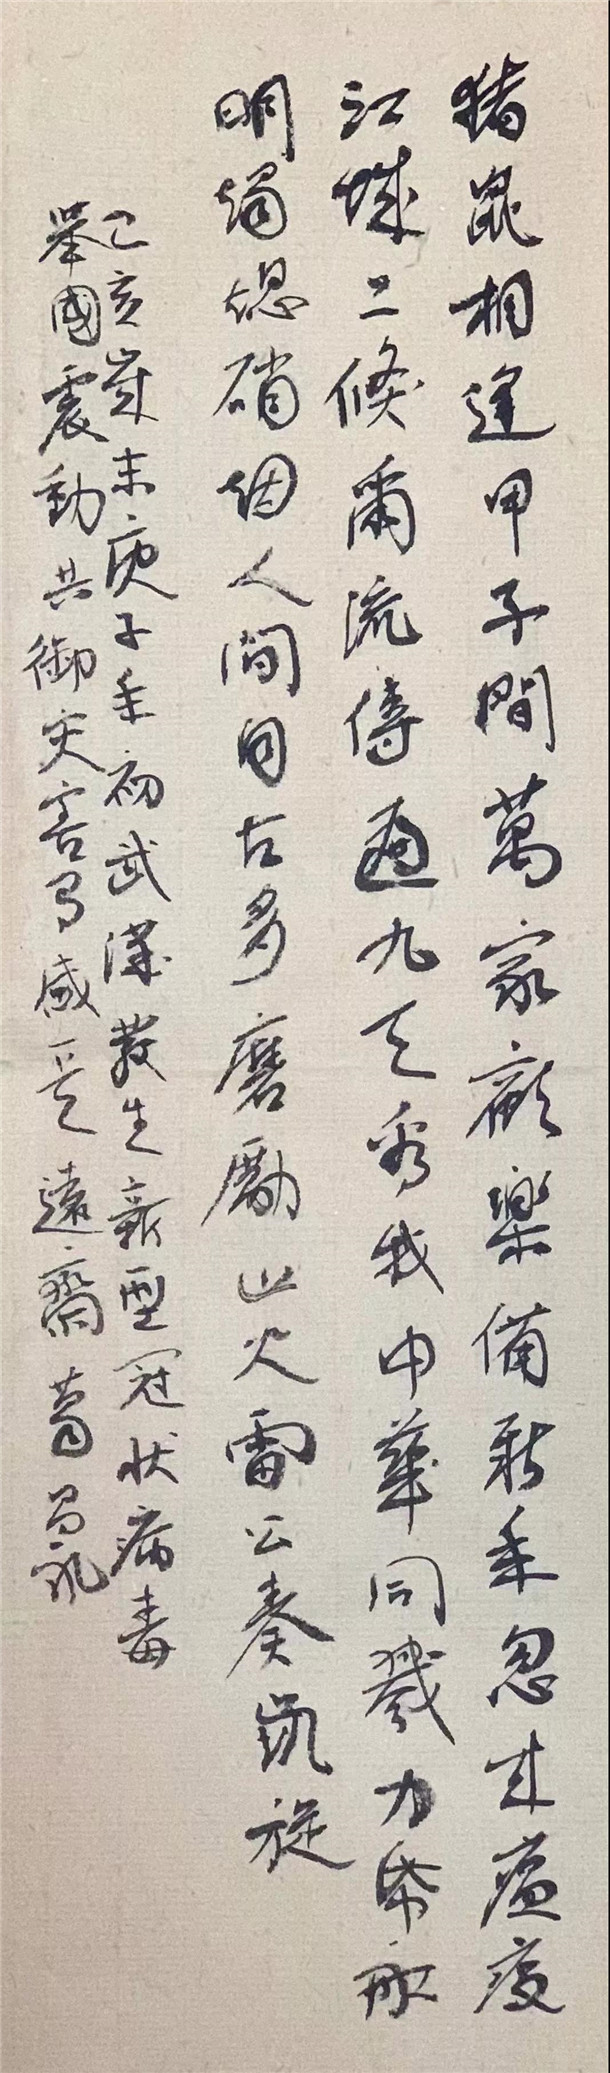 猪鼠相逢甲子間萬家歡樂備新年忽來瘟疫
江城上倏爾流傳遍九天看我中華同戮力
明燭熄硝烟人間自古多磨勵山火雷公奏凱旋
己亥歲末庚子年初武漢發生新型冠狀病毒
舉國震動共御灾害有感遠齋葛昌